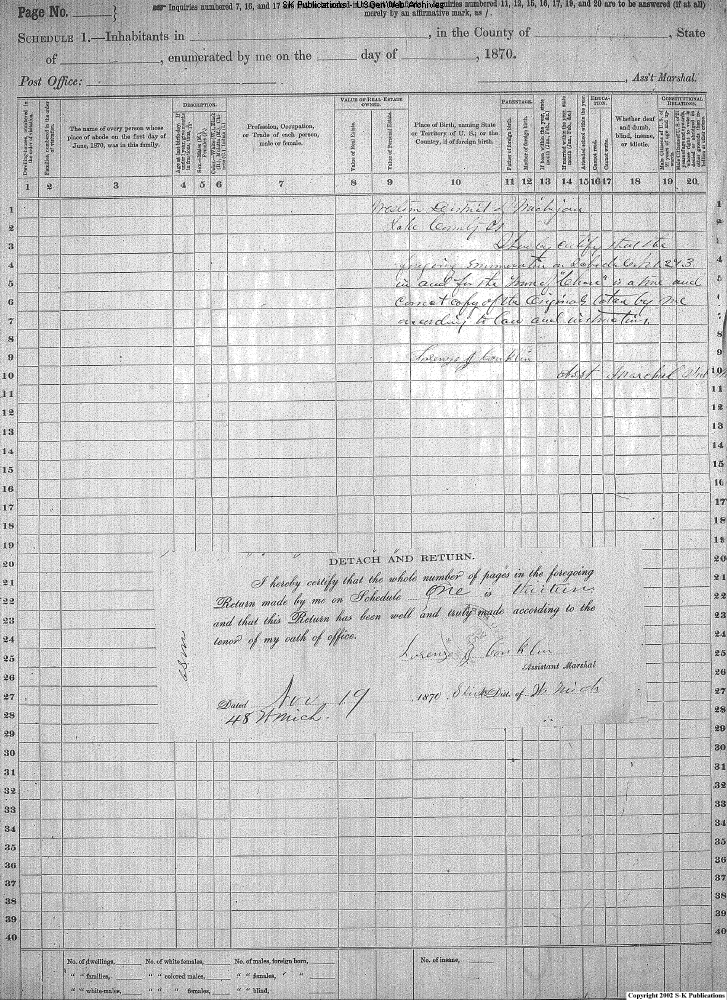 Page No.
Inquiries numbered 7, 16, and 17
S-K Publications - USGenWeb Archives
Inquiries numbered 11, 12, 15, 16, 17, 19, and 20 are to be answered (if at all)
merely by an affirmative mark, as /.
SCHEDULE 1.—Inhabitants in , in the County of , State
of , enumerated by me on the day of , 1870.
Post Office: , Ass't Marshal.
DESCRIPTION.
VALUE OF REAL ESTATE OWNED.
PARENTAGE.
EDUCATION.
CONSTITUTIONAL RELATIONS.
Dwelling-houses, numbered in the order of visitation.
Families, numbered in the order of visitation.
The name of every person whose place of abode on the first day of June, 1870, was in this family.
Profession, Occupation, or Trade of each person, male or female.
Value of Real Estate.
Value of Personal Estate.
Place of Birth, naming State or Territory of U. S.; or the Country, if of foreign birth.
Father of foreign birth.
Mother of foreign birth.
Attended school within the year.
Cannot read.
Cannot write.
Whether deaf and dumb, blind, insane, or idiotic.
1 2 3 4 5 6 7 8 9 10 11 12 13 14 15 16 17 18 19 20
1 Western District of Michigan 1
2 Lake County 2
3 I hereby certify that the 3
4 foregoing Enumeration 4
5 in and for the Town of "Chase" is a true and 5
6 correct copy of the Original taken by me 6
7 according to law and instructions 7
8 8
9 Lorenzo J Conklin 9
10 Asst Marshal 10
11 11
12 12
13 13
14 14
15 15
16 16
17 17
18 18
19 19
DETACH AND RETURN.
I hereby certify that the whole number of pages in the foregoing
Return made by me on Schedule One is thirteen
and that this Return has been well and truly made according to the
tenor of my oath of office.
Lorenzo J Conklin
Assistant Marshal
Dated Nov 19 1870 Dist. of W. Mich
48 W Mich.
20 20
21 21
22 22
23 23
24 24
25 25
26 26
27 27
28 28
29 29
30 30
31 31
32 32
33 33
34 34
35 35
36 36
37 37
38 38
39 39
40 40
No. of dwellings, No. of white females, No. of males, foreign born, No. of insane,
" " families, " " colored males, " " females, " "
" " white males, " " " females, " " blind,
Copyright 2002 S-K Publications